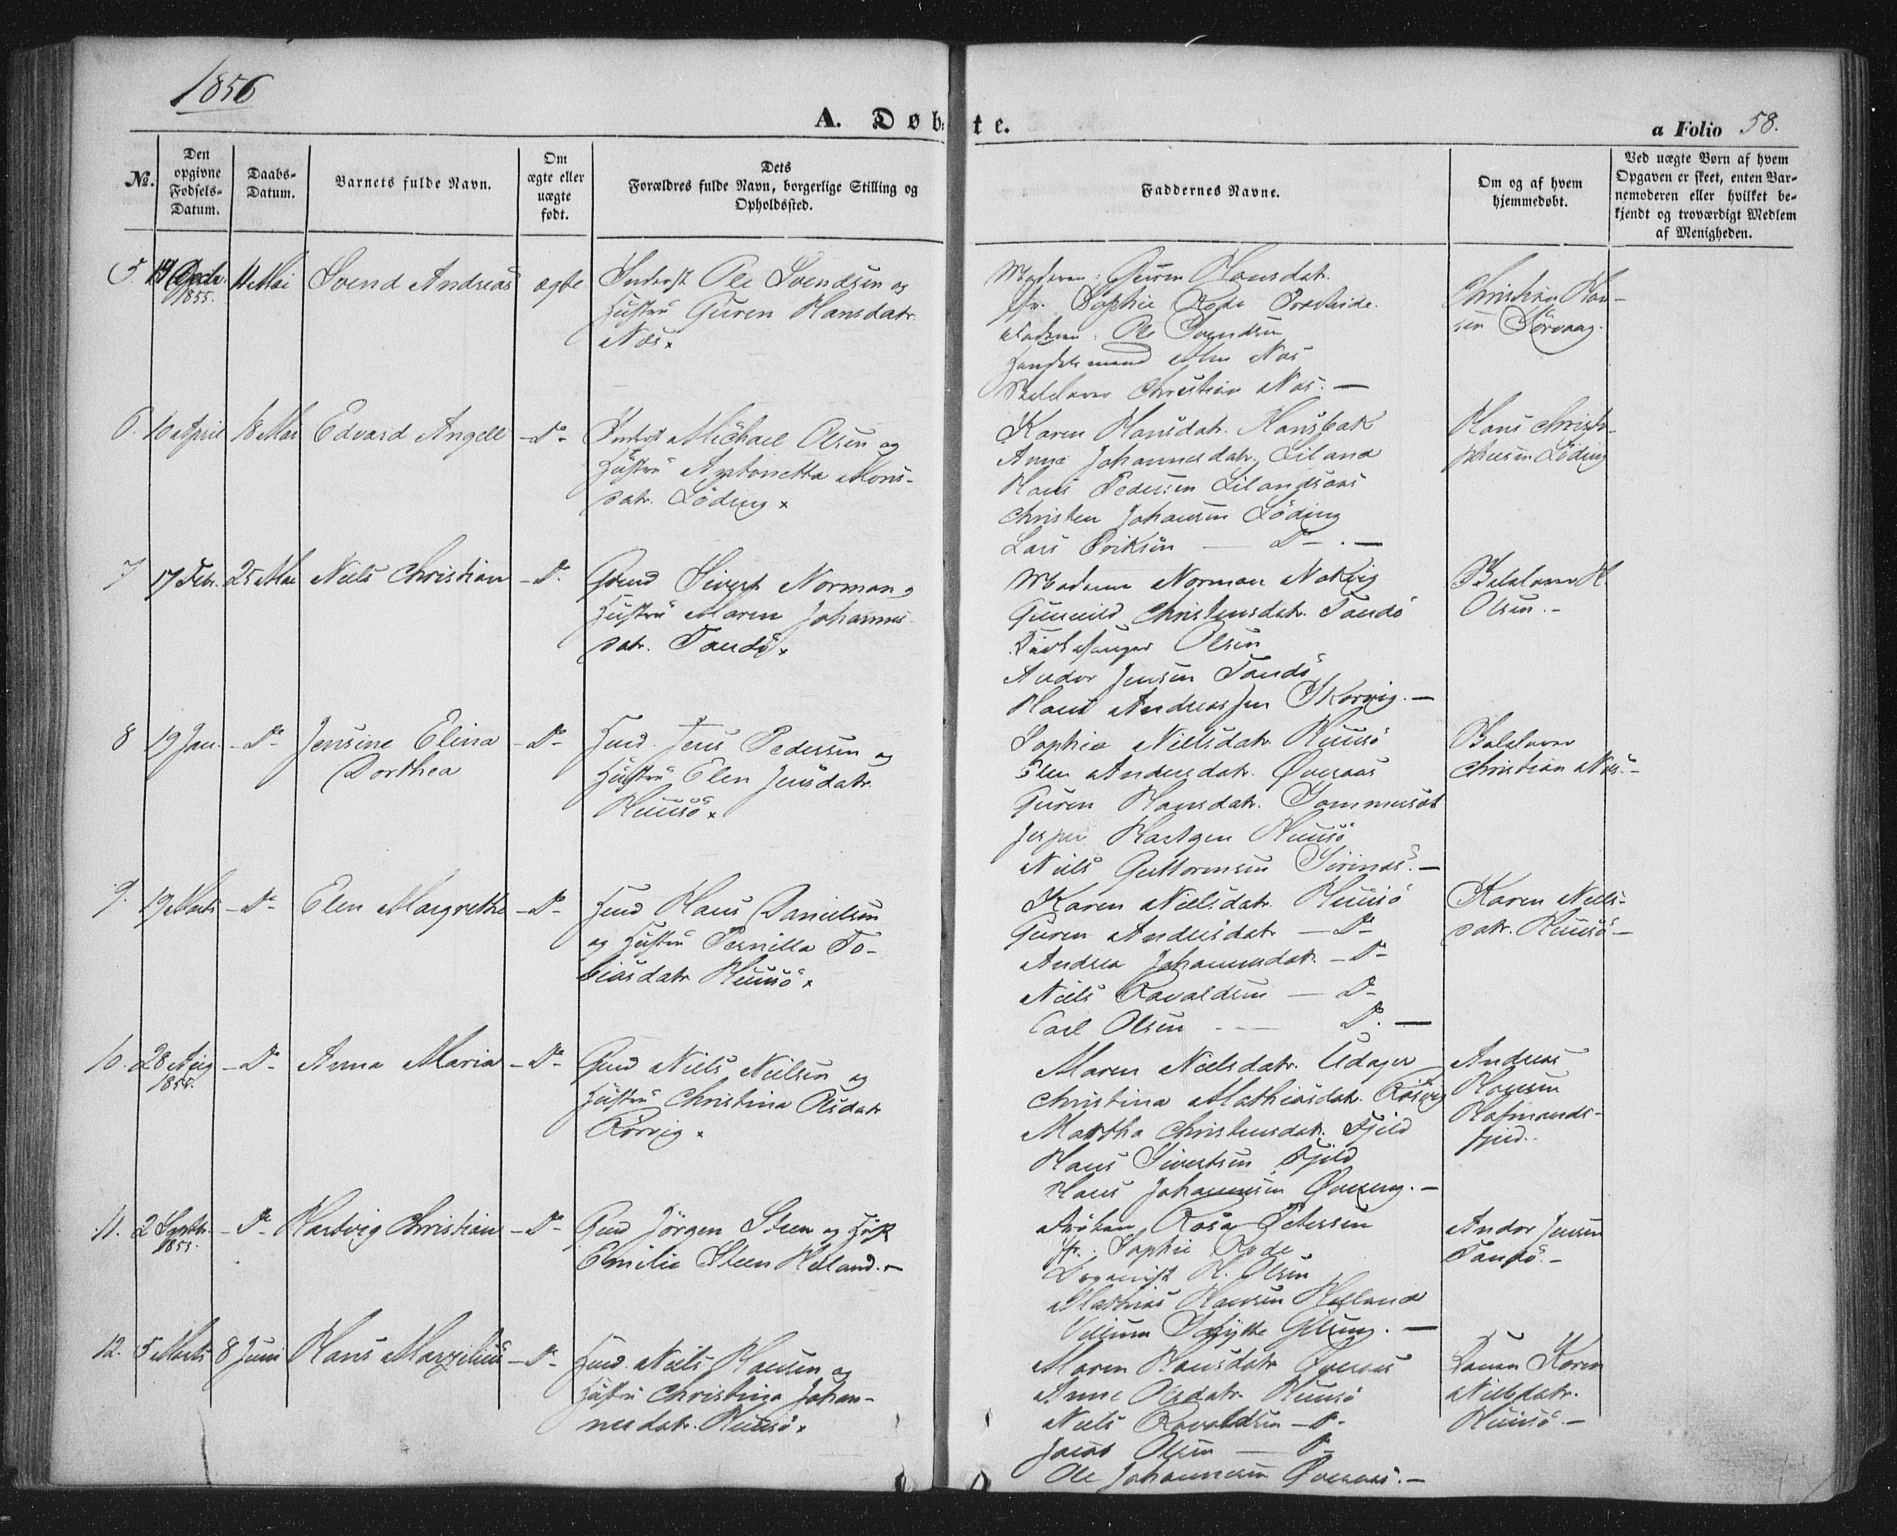 1856
A. Døbte.
a Folio 58.
No.
Den opgivne Fødsels-Datum.
Daabs-Datum.
Barnets fulde Navn.
Om ægte eller uægte født.
Dets Forældres fulde Navn, borgerlige Stilling og Opholdssted.
Faddernes Navne.
Om og af hvem hjemmedøbt.
Ved uægte Børn af hvem Opgaven er skeet, enten Barnemoderen eller hvilket bekjendt og troværdigt Medlem af Menigheden.
5. 1855. 11 Mai Svend Andreas ægte
Inderst Ole Svendsen og
Hustru Guren Hansdatr.
Næs x
Moderen: Guren Hansdatr.
Jfr. Sophie Rode
Faderen: Ole Svendsen
Handelsmand Næs
Christian Næs. —
Christian Han-
sen Sørvaag.
6. 10 April 18 Mai Edvard Angell - Do -
Inderst Michael Olsen og
Hustru Antonetta Mons-
datr. Löding x
Karen Hansdatr. Hansbak
Anne Johannesdatr. Liland
Hans Pedersen Lilandsaas
Christen Johansen Löding
Lars Eriksen — Do - . —
Hans Christo-
phersen Löding
7 17 Febr. 25 Mai Niels Christian - Do -
Grmd Sivert Norman og
Hustru Maren Johannes-
datr. Tandö x
Madame Norman
Gunnild Christensdatr. Tandö
Kirkesanger Olsen
Andor Jensen Tandö
Hans Andreassen Skorvig. —
H.
Olsen. -
8 19 Jan. - Do - Jensine Elina
Dorthea - Do -
Hmd. Jens Pedersen og
Hustru Elen Jensdatr.
Huusö x
Sophia Nielsdatr. Huusö
Elen Andersdatr. Overaas
Guren Hansdatr. Sommerset
Huusö
Niels Guttormsen —
Christian Næs. -
9. 19 Marts - Do - Elen Margrethe - Do -
Hmd Hans Danielsen
og Hustru Pernilla To-
biasdatr Huusö x
Karen Nielsdatr. Huusö
Guren Andersdatr — Do -
Andrea Johannesdatr. - Do -
Niels Ravaldsen — Do -
Carl Olsen - - - Do. —
Karen Niels-
datr. Huusö —
10. 28 Aug 1855. - Do - Anna Maria - Do -
Grmd Niels Nielsen og
Hustru Christina Olsdatr
Rörvig x
Maren Nielsdatr.
Christina Mathiasdatr. Rösvig
Martha Christensdatr. Fjeld
Hans Sivertsen Fjeld
Hans Johannesen —
Andreas
Hansen
Hofmands-
fjeld.
11. 2 Septbr. 1855. - Do - Hartvig Christian - Do -
Grmd Jörgen Steen og Hust.
Emilie Steen Helland. -
Fröken Rosa Petersen
Jfr. Sophie Rode
H. Olsen
Mathias Hansen Helland
Schytte —
Andor Jensen
Tandö. -
12. 5 Marts 8 Juni Hans - Do -
Hmd. Niels Hansen og
Hustru Christina Johan-
nesdatr. Huusö x
Maren Hansdatr. Overaas
Anne Olsdatr. Huusö
Niels Ravaldsen - Do -
Jacob Olsen — Do -
Ole Johannesen Overaas. —
Karen
Nielsdatr.
Huusö. —